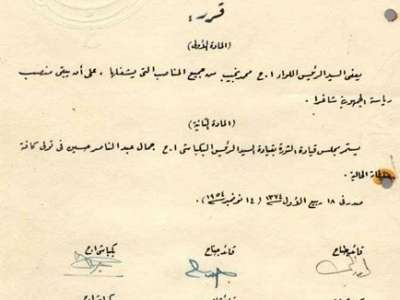 قرر :
(المادة الأولى)
يعفى السيد الرئيس اللواء ا.ح محمد نجيب من جميع المناصب التى يشغلها . على أن يبقى منصب
رياسة الجمهورية شاغرا .
(المادة الثانية)
يستمر مجلس قيادة الثورة بقيادة السيد الرئيس البكباشى ا.ح جمال عبد الناصر حسين فى تولى كافة
الحالية .
صدر فى ١٨ ربيع الأول ١٣٧٤ ( ١٤ نوفمبر ١٩٥٤ ).
قائد جناح قائد جناح بكباشى ا.ح